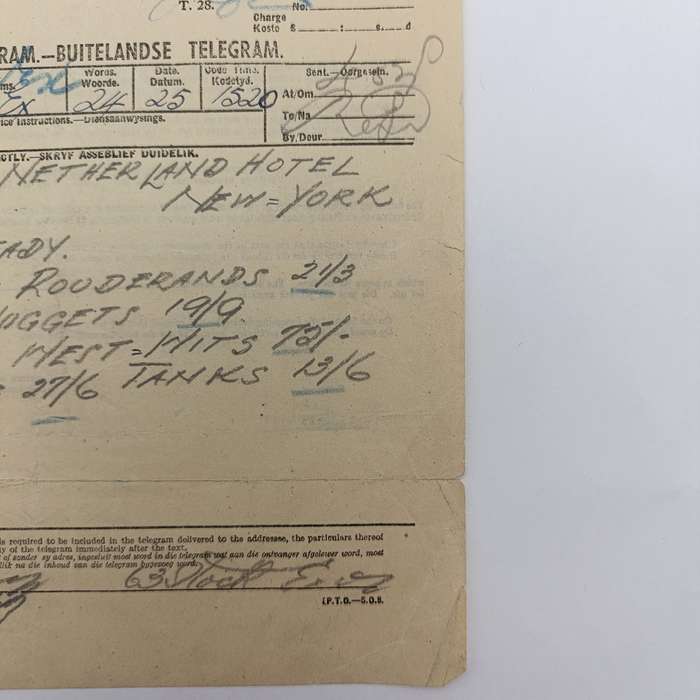 T. 28.
No.
Charge
Koste £ : s. d
RAM.—BUITELANDSE TELEGRAM.
Words. Woorde. 24
Date. Datum. 25
Code Time. Kodetyd. 1520
Sent.—Oorgesein.
At/Om
To/Na
By/Deur
ice Instructions.—Diensaanwysings.
CTLY.—SKRYF ASSEBLIEF DUIDELIK.
NETHERLAND HOTEL
NEW=YORK
EADY.
ROODERANDS 21/3
NUGGETS 19/9
WEST=WITS 75/-
27/6 TANKS 13/6
is required to be included in the telegram delivered to the addressee, the particulars thereof
y of the telegram immediately after the text.
of sonder sy adres, ingesluit moet word in die telegram wat aan die ontvanger afgelewer word, moet
lik na die inhoud van die telegram bygevoeg word.
63 Stock Exch
[P.T.O.—S.O.B.